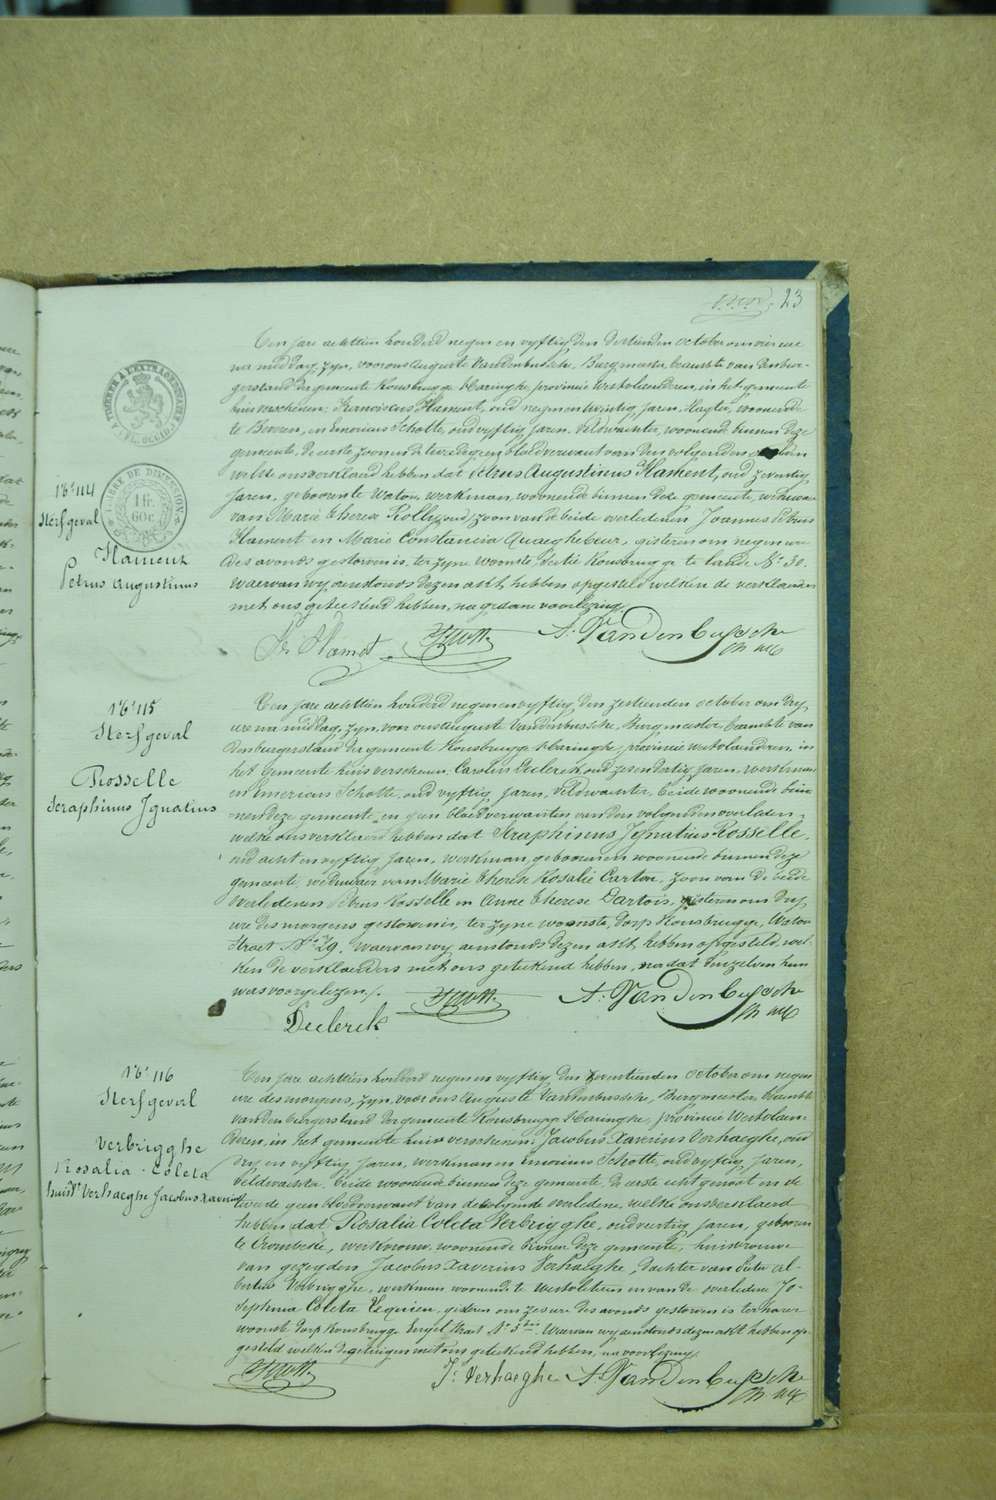 23
TIMBRE A L'EXTRAORDINAIRE
FL. OCCID.
TIMBRE DE DIMENSION
1 fr.
60 c.
N° 114
Sterfgeval
Hament
Petrus Augustinus
Ten jare achttien honderd negen en vyftig den dertienden october om vier ure
na middag, zyn, voor ons Auguste Vandenbussche, Burgmeester, beambte van den bur-
gerstand der gemeente Rousbrugge Haringhe, provincie Westvlaenderen, in het gemeente
huis verschenen, Franciscus Hament, oud negen en twintig jaren, woonende
te Beveren, en Emericus Schotte, oud vyftig jaren, veldwachter, woonende binnen deze
gemeente, de eerste zoon en de tweede geen bloedverwant van den volgenden overleden
welke ons verklaerd hebben dat Petrus Augustinus Hament, oud zeventig
jaren, geboren te Watou, werkman, woonende binnen deze gemeente, weduwaer
van Marie Therese Rolly, zoon van de beide overledenen Joannes Petrus
Hament en Marie Constancia Quaeghebeur, gisteren om negen ure
des avonds gestorven is, ter zyne woonste, Sectie Rousbrugge te lande N° 30.
Waervan wy aenstonds dezen akt hebben opgesteld welken de verklaerders
met ons geteekend hebben, na gedane voorlezing.
Fr Hament Schotte A. Vandenbussche
N° 115
Sterfgeval
Rosselle
Seraphinus Ignatius
Ten jare achttien honderd negen en vyftig, den zestienden october om dry
ure na middag, zyn, voor ons Auguste Vandenbussche, Burgmeester, beambte van
den burgerstand der gemeente Rousbrugge Haringhe, provincie Westvlaenderen, in
het gemeente huis verschenen, Carolus Declerck, oud zes en dertig jaren, werkman
en Emericus Schotte, oud vyftig jaren, veldwachter, beide woonende bin-
nen deze gemeente, en geen bloedverwanten van den volgenden overleden,
welke ons verklaerd hebben dat Seraphinus Ignatius Rosselle,
oud acht en vyftig jaren, werkman, geboren en woonende binnen deze
gemeente, weduwaer van Marie Therese Rosalie Carton, zoon van de beide
overledenen Petrus Rosselle en Anne Therese Dartois, gisteren om dry
ure des morgens gestorven is, ter zyne woonste, dorp Rousbrugge, Watou
straet N° 29. Waervan wy aenstonds dezen akt hebben opgesteld wel-
ken de verklaerders met ons geteekend hebben, nadat dezelven hun
was voorgelezen.
Declerck Schotte A. Vandenbussche
N° 116
Sterfgeval
Verbrigghe
Rosalia Coleta
huisv. Verhaeghe Jacobus Xaverius
Ten jare achttien honderd negen en vyftig den zeventienden october om negen
ure des morgens, zyn, voor ons Auguste Vandenbussche, Burgmeester, beambte
van den burgerstand der gemeente Rousbrugge Haringhe, provincie Westvlaen-
deren, in het gemeente huis verschenen, Jacobus Xaverius Verhaeghe, oud
dry en vyftig jaren, werkman en Emericus Schotte, oud vyftig jaren,
veldwachter, beide woonende binnen deze gemeente, de eerste echtgenoot en de
tweede geen bloedverwant van de volgende overledene, welke ons verklaerd
hebben dat Rosalia Coleta Verbrigghe, oud veertig jaren, geboren
te Crombeke, werkvrouw, woonende binnen deze gemeente, huisvrouw
van gezegden Jacobus Xaverius Verhaeghe, dochter van Pieter Al-
bertus Verbrigghe, werkman woonende te Westvleteren en van de overledene Jo-
sephina Coleta Lequien, gisteren om zes ure des avonds gestorven is ter harer
woonste dorp Rousbrugge Bergel straet N° 5 bis. Waervan wy aenstonds dezen akt hebben op-
gesteld welken de getuigen met ons geteekend hebben, na voorlezing.
Schotte J. Verhaeghe A. Vandenbussche